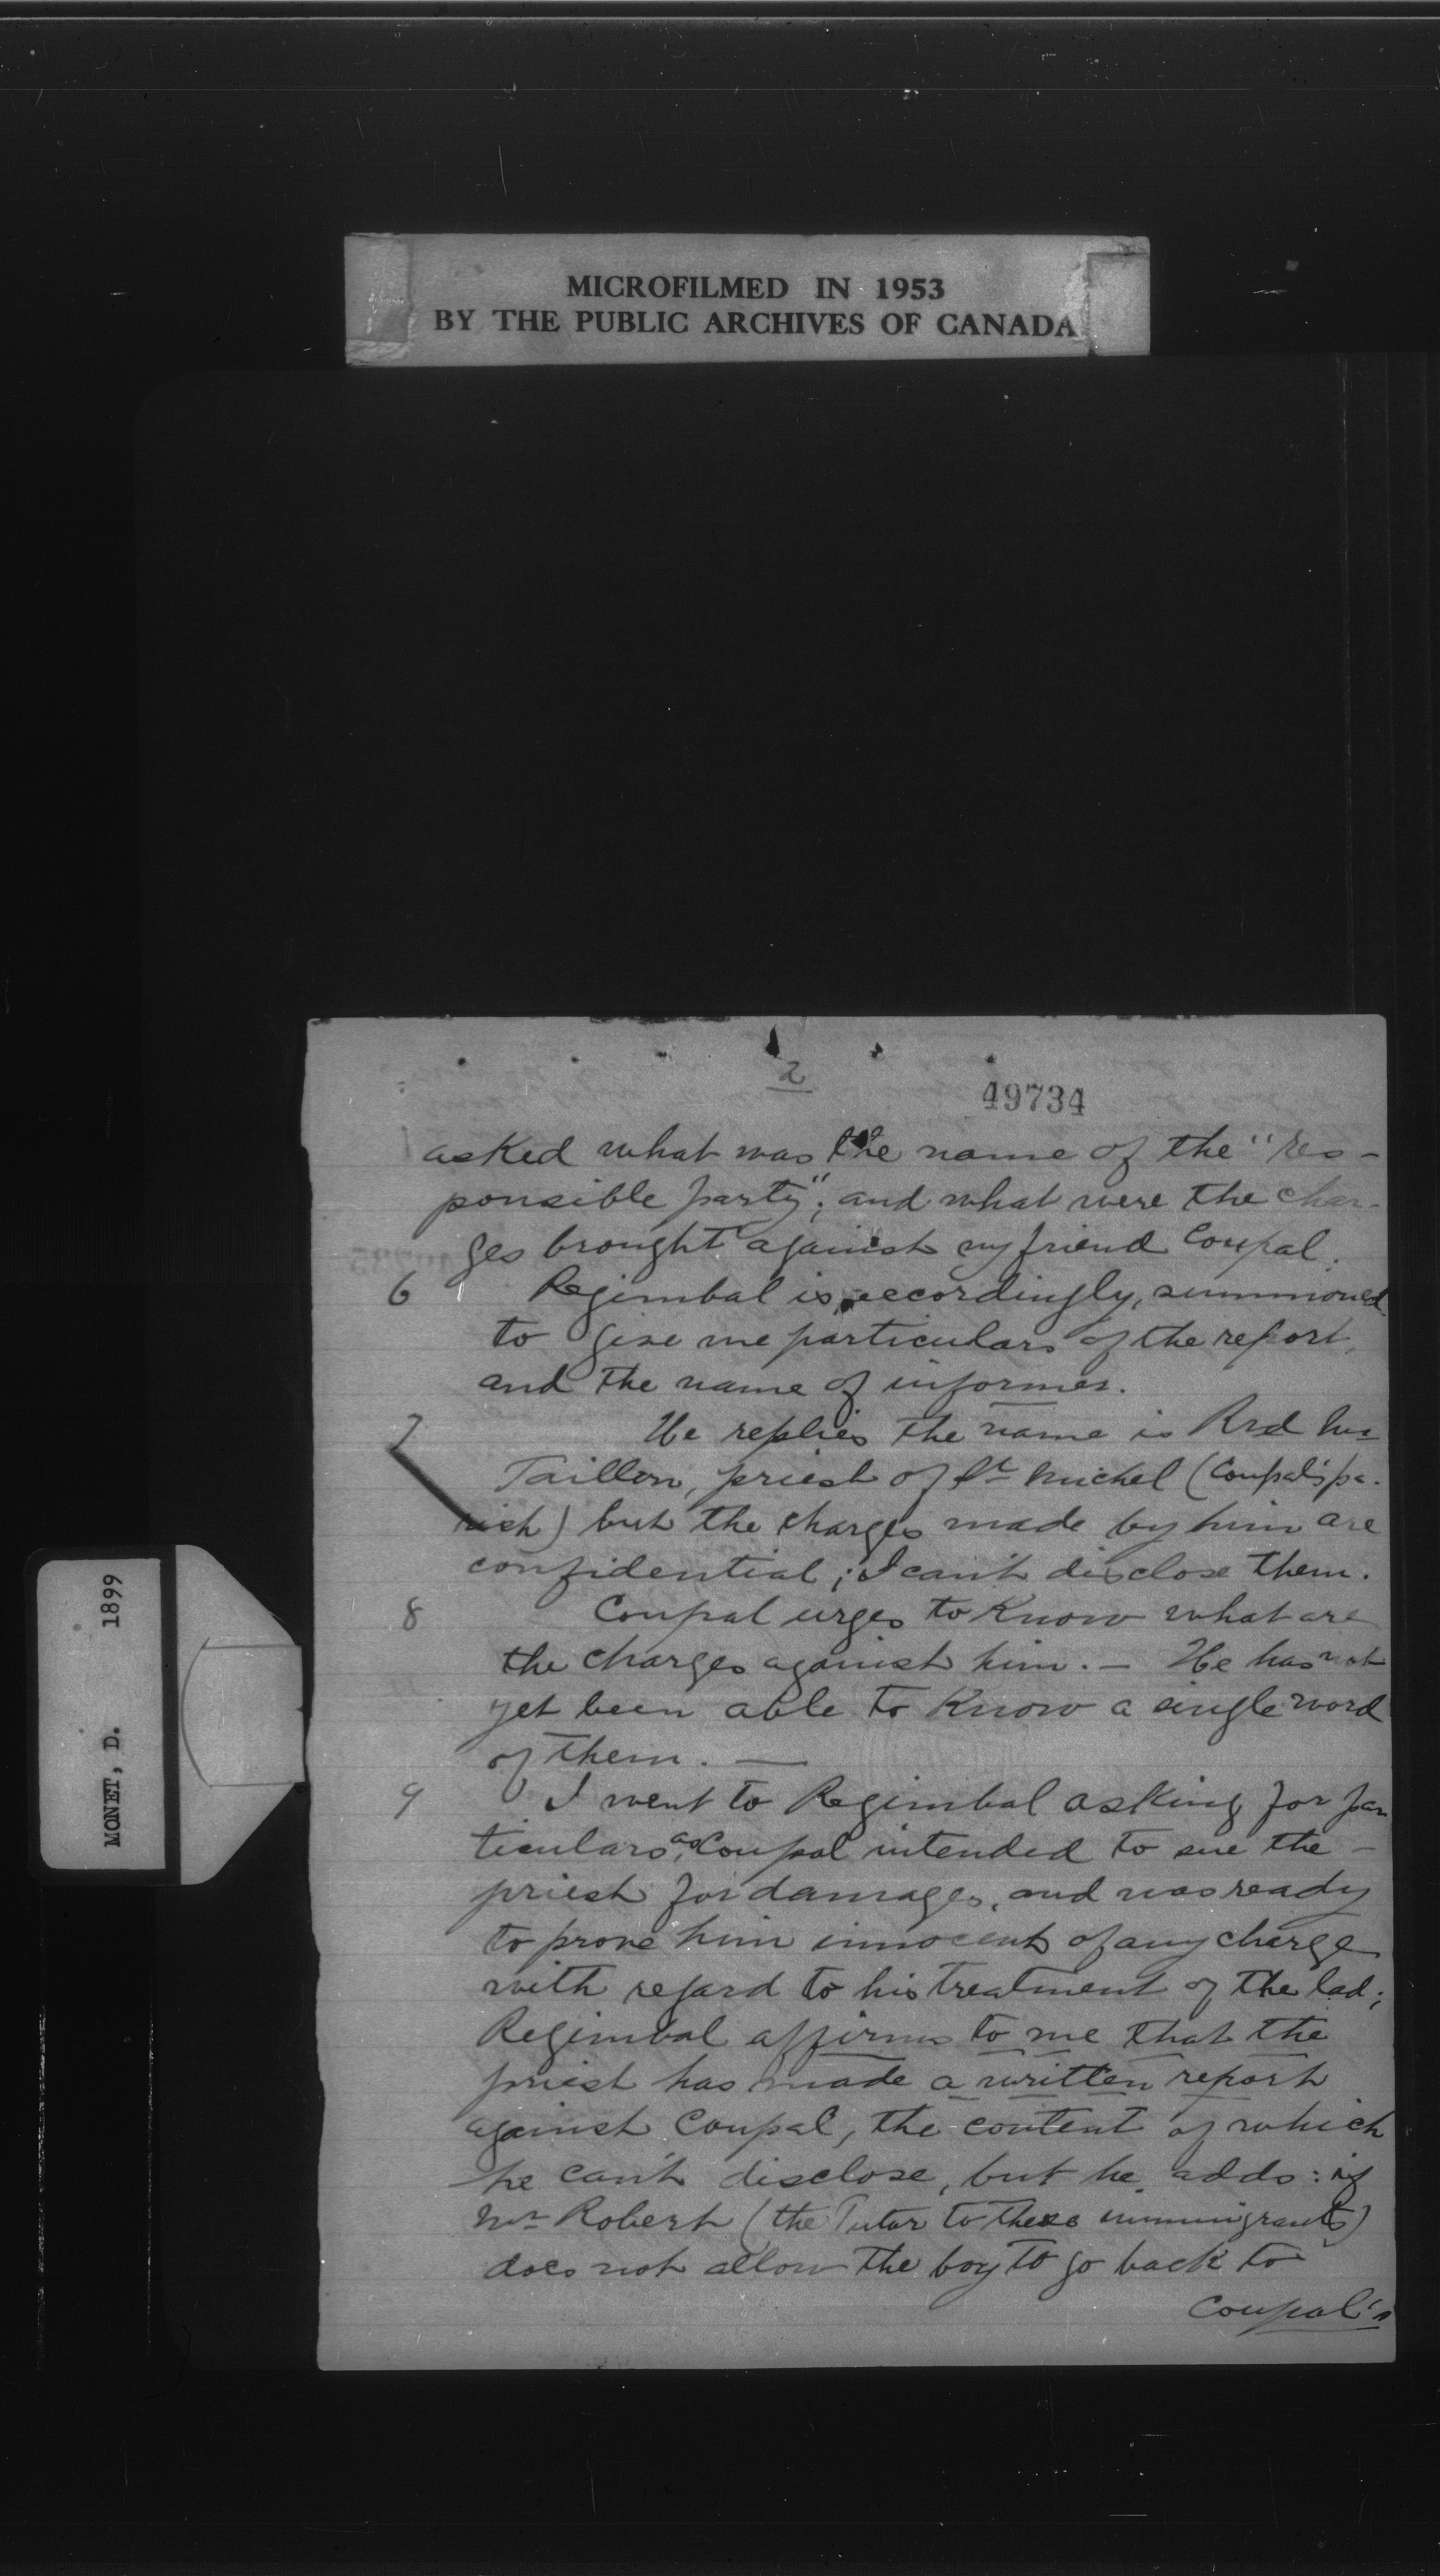 MICROFILMED IN 1953
BY THE PUBLIC ARCHIVES OF CANADA
MONET, D. 1899
2
49734
asked what was the name of the "res-
ponsible party"; and what were the char-
ges brought against my friend Coupal.
6 Regimbal is, accordingly, summoned
to give me particulars of the report,
and the name of informer.
7 He replies the name is Rvd Mr
Taillon, priest of St Michel (Coupal's pa-
rish) but the charges made by him are
confidential; I can't disclose them.
8 Coupal urges to know what are
the charges against him. — He has not
yet been able to know a single word
of them. —
9 I went to Regimbal asking for par
ticulars, as Coupal intended to sue the -
priest for damages, and was ready
to prove him innocent of any charge
with regard to his treatment of the lad;
Regimbal affirms to me that the
priest has made a written report
against Coupal, the content of which
he can't disclose, but he adds: if
Mr Robert (the Tutor to these immigrants)
does not allow the boy to go back to
Coupal's